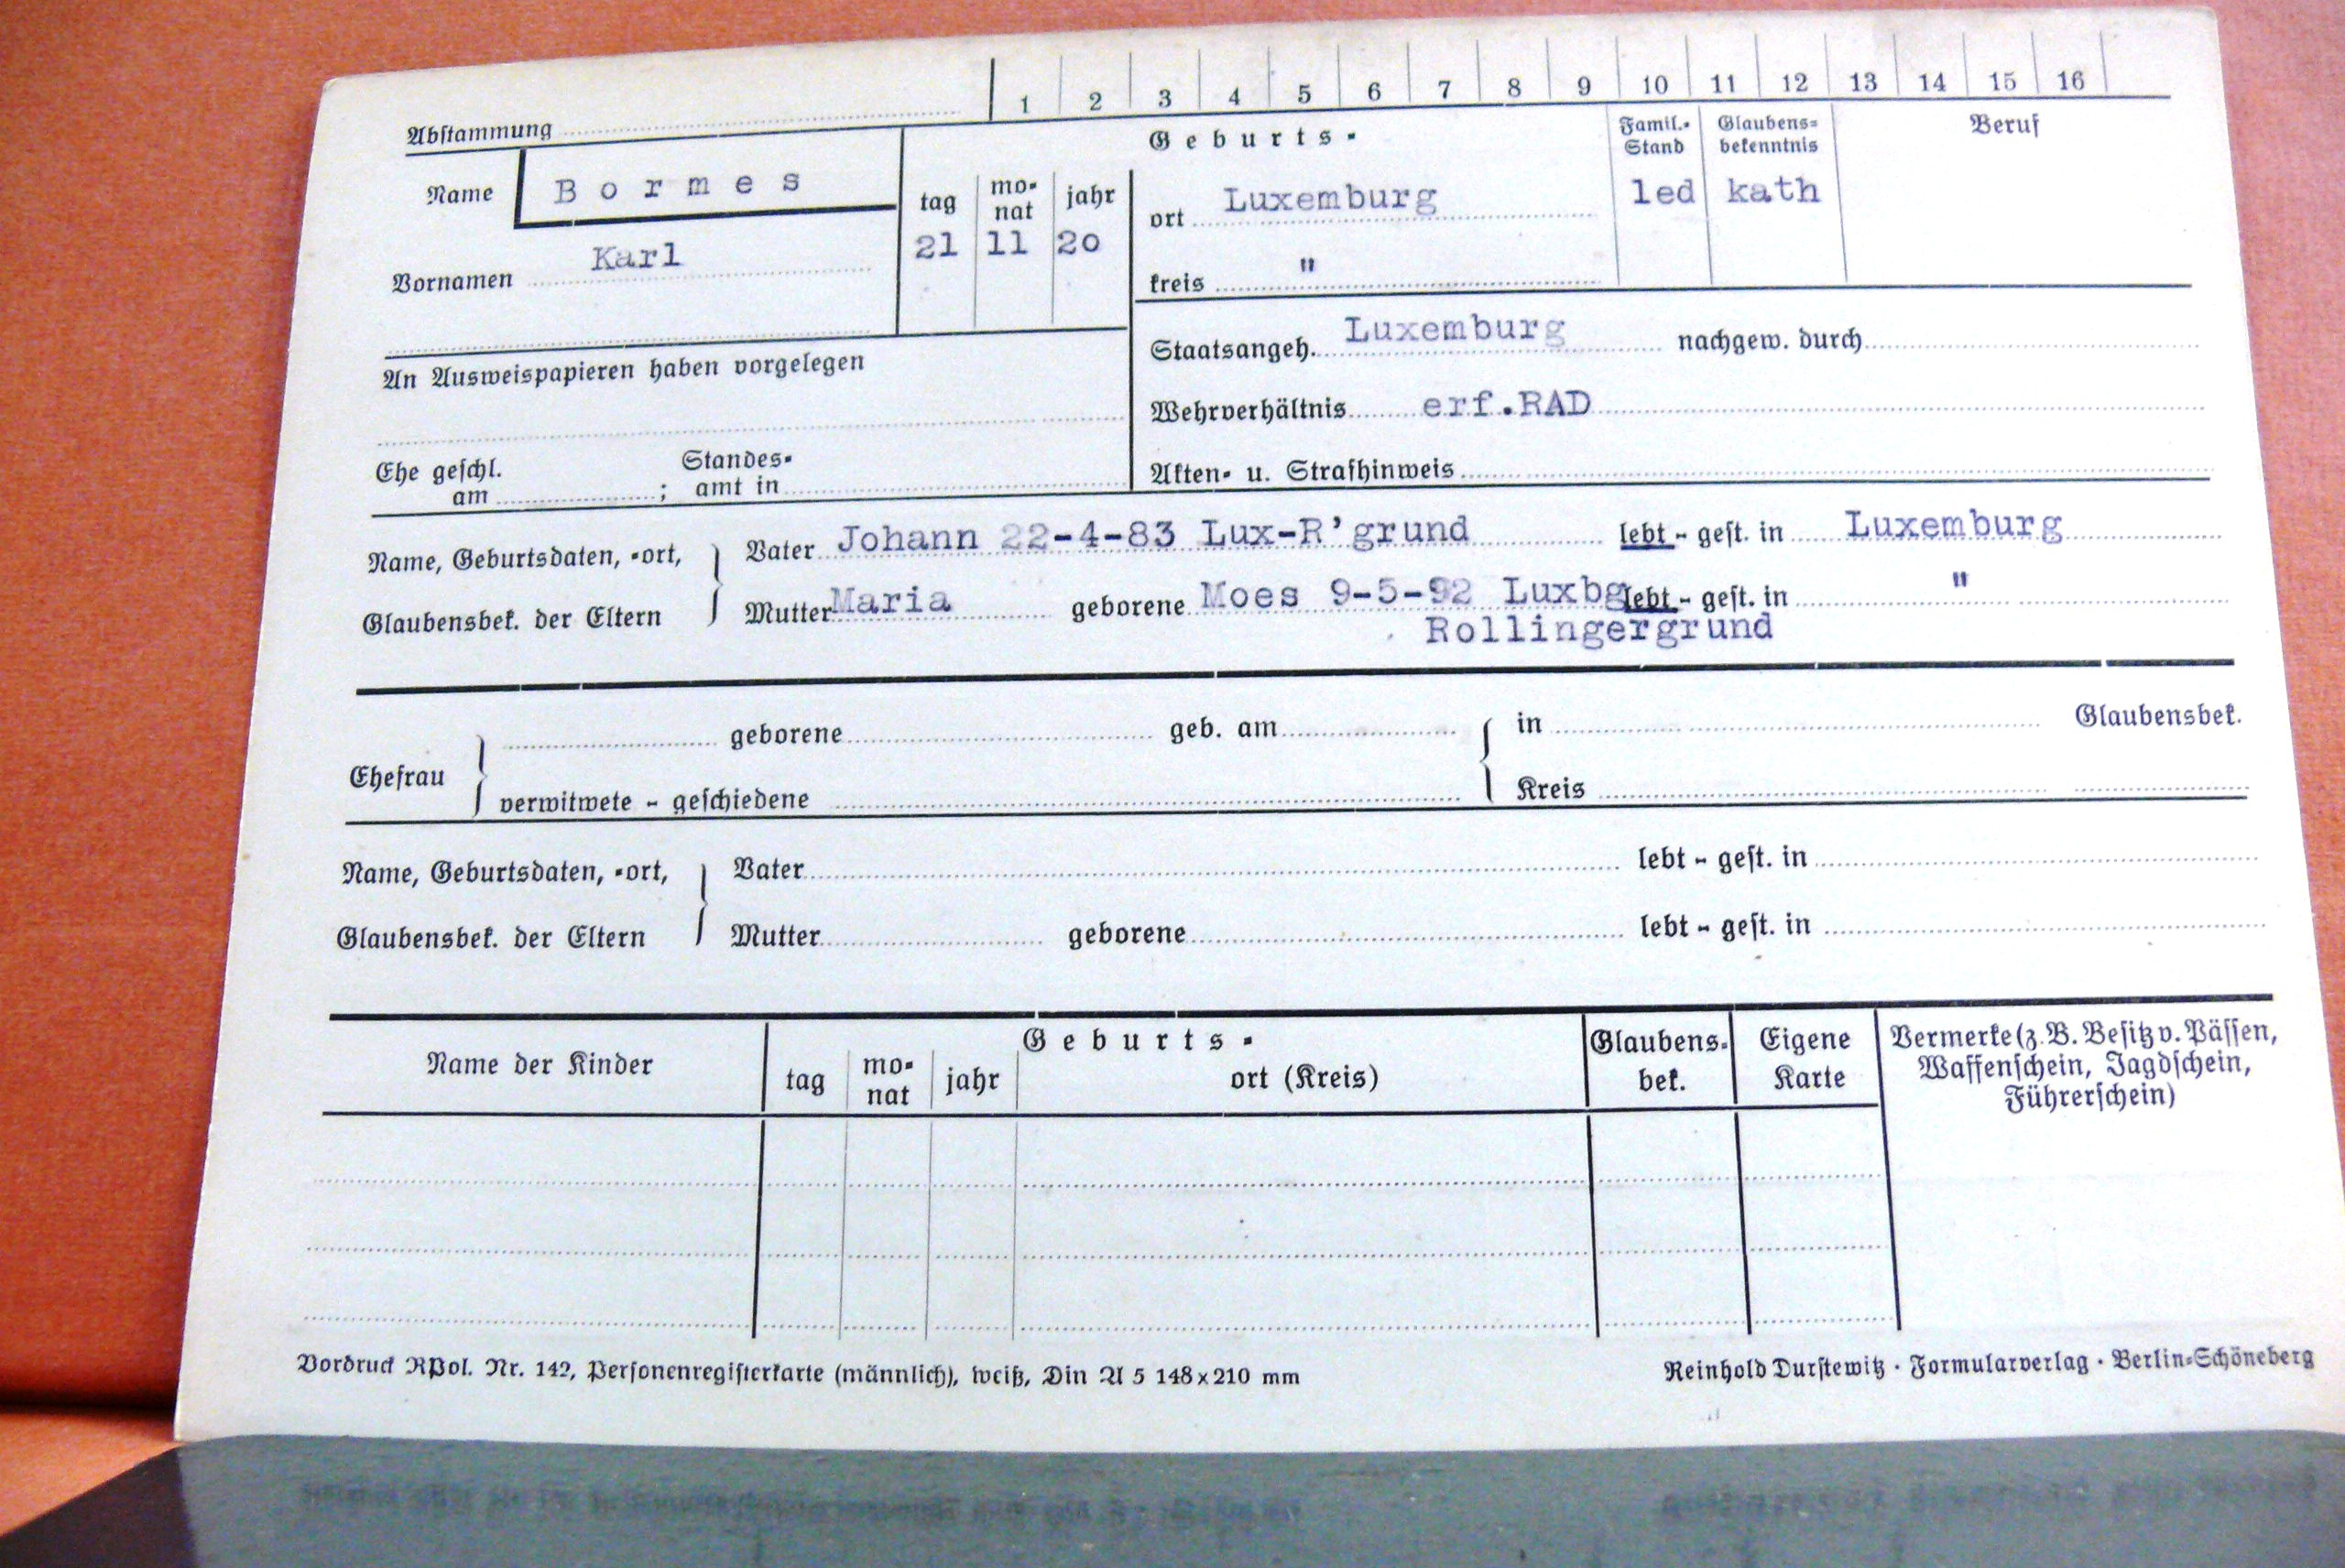 1 2 3 4 5 6 7 8 9 10 11 12 13 14 15 16
Abstammung
Name Bormes
Vornamen Karl
Geburts-
tag monat jahr
21 11 20
ort Luxemburg
kreis "
Famil.-Stand
led
Glaubens-bekenntnis
kath
Beruf
An Ausweispapieren haben vorgelegen
Staatsangeh. Luxemburg nachgew. durch
Wehrverhältnis erf.RAD
Akten- u. Strafhinweis
Ehe geschl. am ; Standes-amt in
Name, Geburtsdaten, -ort,
Glaubensbek. der Eltern
Vater Johann 22-4-83 Lux-R'grund lebt - gest. in Luxemburg
Mutter Maria geborene Moes 9-5-92 Luxbg lebt - gest. in "
Rollingergrund
Ehefrau
geborene geb. am in Glaubensbek.
verwitwete - geschiedene Kreis
Name, Geburtsdaten, -ort,
Glaubensbek. der Eltern
Vater lebt - gest. in
Mutter geborene lebt - gest. in
Name der Kinder
Geburts-
tag mo-nat jahr ort (Kreis)
Glaubens-bek.
Eigene Karte
Vermerke (z. B. Besitz v. Pässen,
Waffenschein, Jagdschein,
Führerschein)
Vordruck RPol. Nr. 142, Personenregisterkarte (männlich), weiß, Din A 5 148x210 mm
Reinhold Durstewitz · Formularverlag · Berlin-Schöneberg